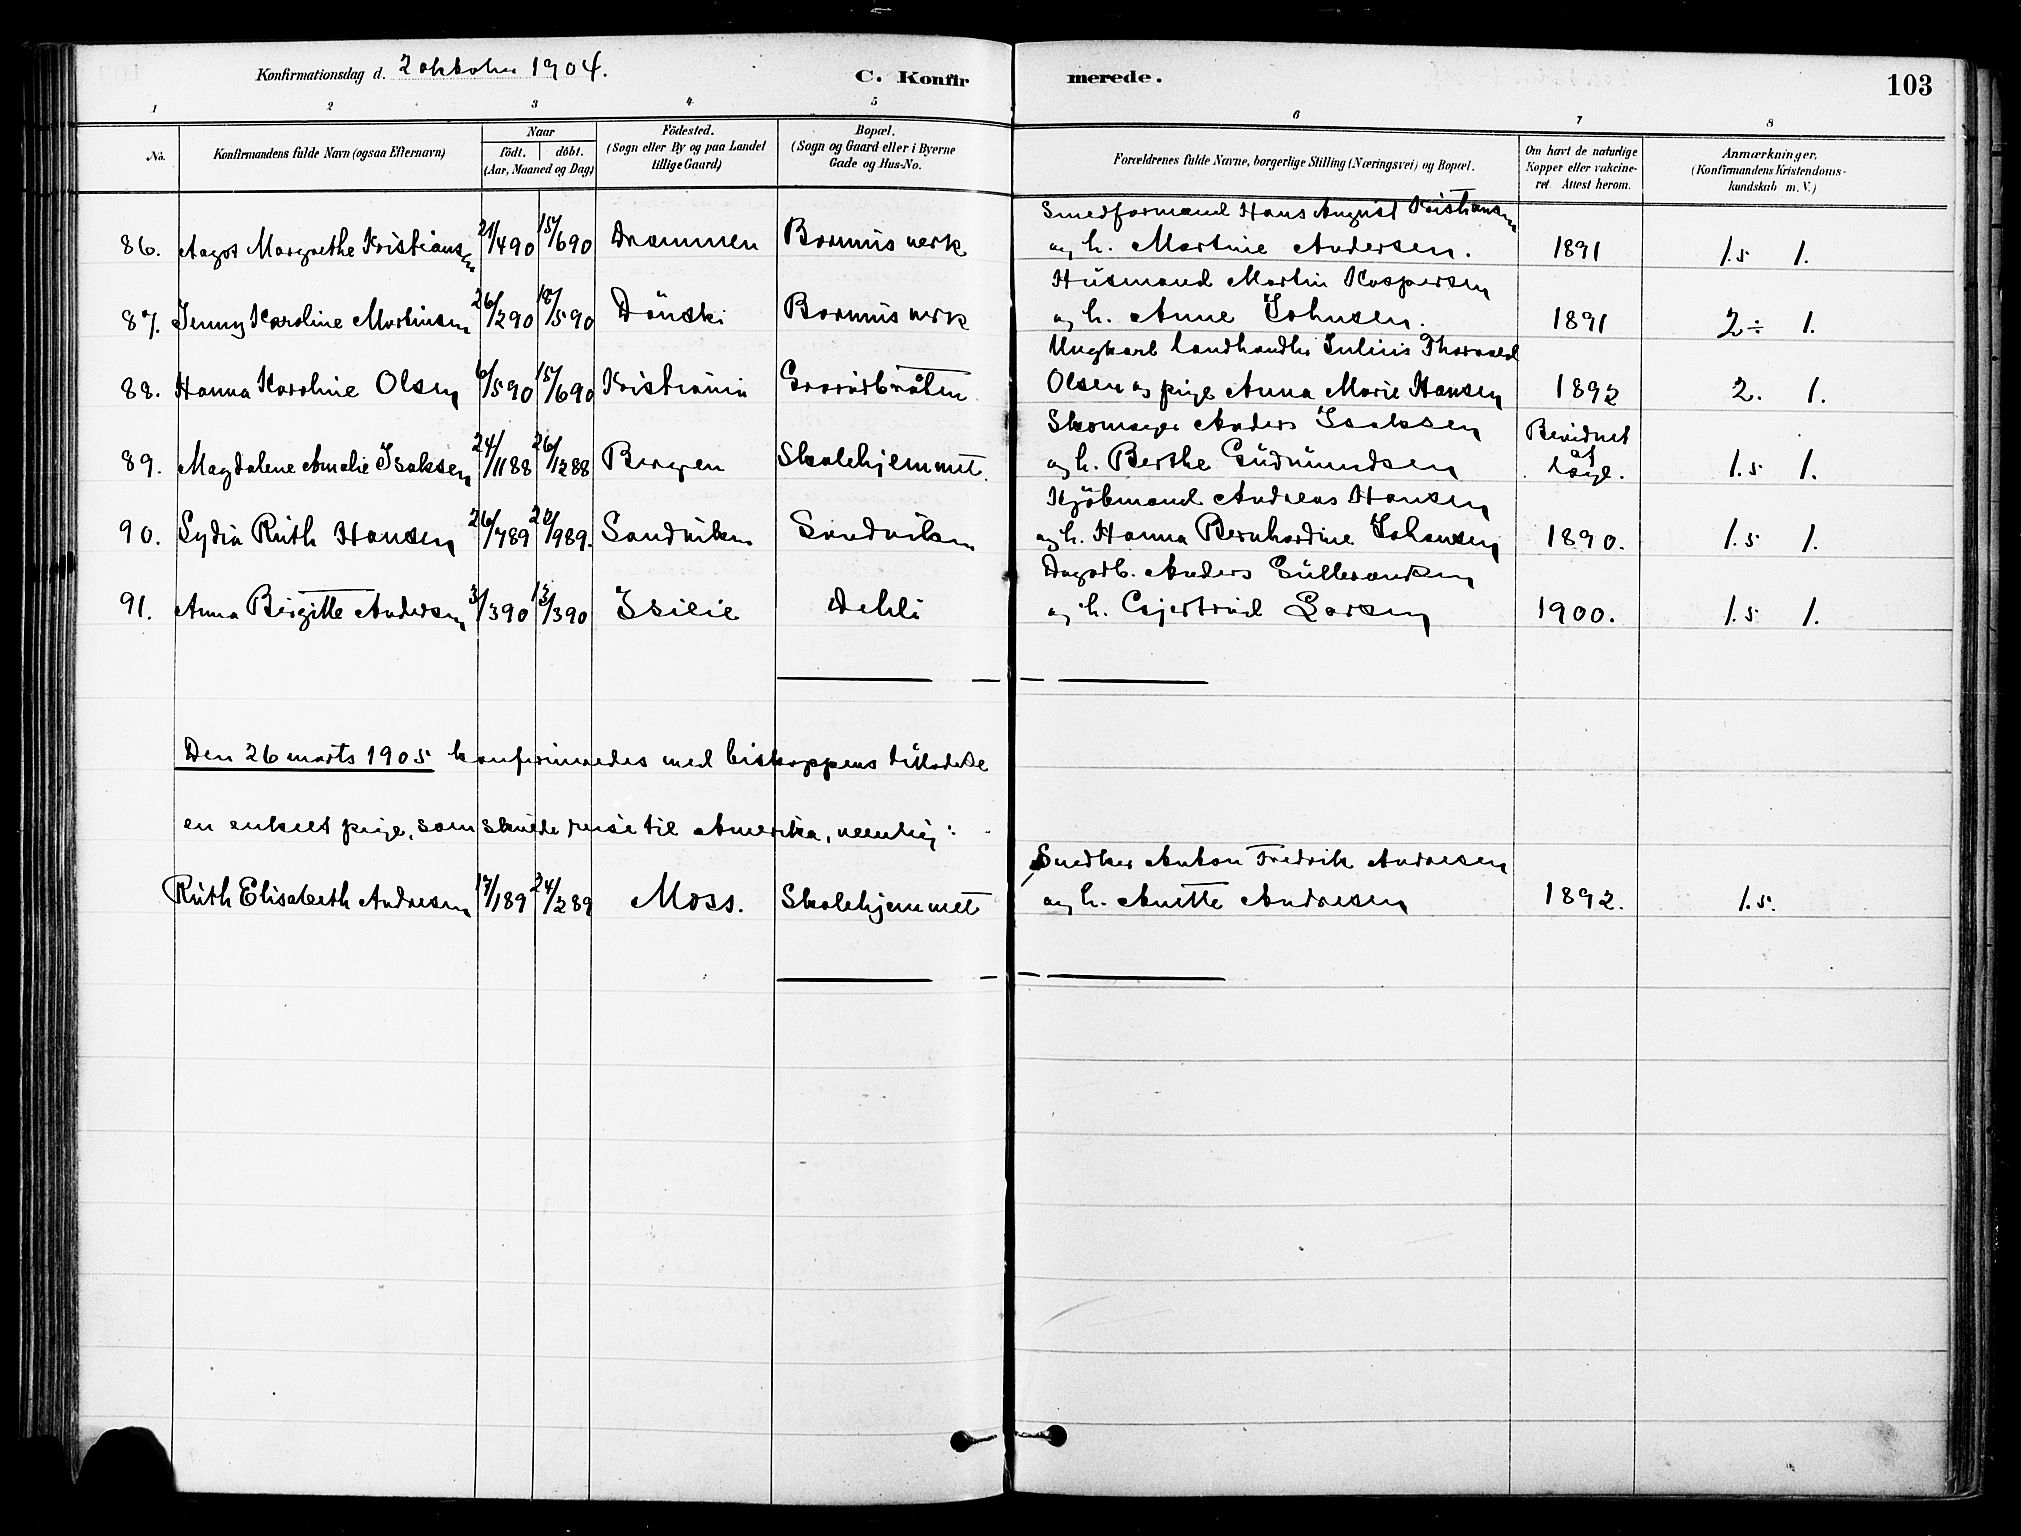 Konfirmationsdag d. 2 oktober 1904. C. Konfirmerede. 103
1 2 3 4 5 6 7 8
No. Konfirmandens fulde Navn (ogsaa Efternavn) Naar födt. döbt. (Aar, Maaned og Dag) Födested. (Sogn eller By og paa Landet tillige Gaard) Bopæl. (Sogn og Gaard eller i Byerne Gade og Hus-No. Forældrenes fulde Navne, borgerlige Stilling (Næringsvei) og Bopæl. Om havt de naturlige Kopper eller vakcineret. Attest herom. Anmærkninger. (Konfirmandens Kristendomskundskab m. V.)
Smedformand Hans August Kristiansen
86. Aagot Margrethe Kristiansen 21/4 90 15/6 90 Drammen Bærums verk og h. Martine Andersen. 1891 1.5 1.
Husmand Martin Kaspersen
87. Jenny Karoline Martinsen 26/2 90 18/5 90 Dönski Bærums verk og h. Anne Johnsen. 1891 2 ÷ 1.
Ungkarl landhandler Julius Thorvald
88. Hanna Karoline Olsen 6/5 90 15/6 90 Kristiania Olsen og pige Anna Marie Hansen 1892 2. 1.
Skomager Anders Isaksen Bevidnet
89. Magdalene Amalie Isaksen 24/11 88 26/12 88 Bergen Skolehjemmet. og h. Berthe Gudmundsen af læge. 1.5 1.
Kjöbmand Andreas Hansen
90. Lydia Ruth Hansen 26/7 89 /9 89. Sandviken Sandviken og h. Hanna Bernhardine Johansen 1890. 1.5 1.
Dagarb. Anders Gulleransen
91. Anna Birgitte Andersen 3/3 90 13/3 90 Isilie Dehli og h. Gjertrud Larsen 1900. 1.5 1.
Den 26 marts 1905 konfirmeredes med biskoppens tilladelse
en enkelt pige, som skulde reise til Amerika, nemlig:
Snedker Anton Fredrik Andresen
Ruth Elisabeth Andresen 17/1 89 24/2 89 Moss. Skolehjemmet og h. Anette Andresen 1892. 1.5.